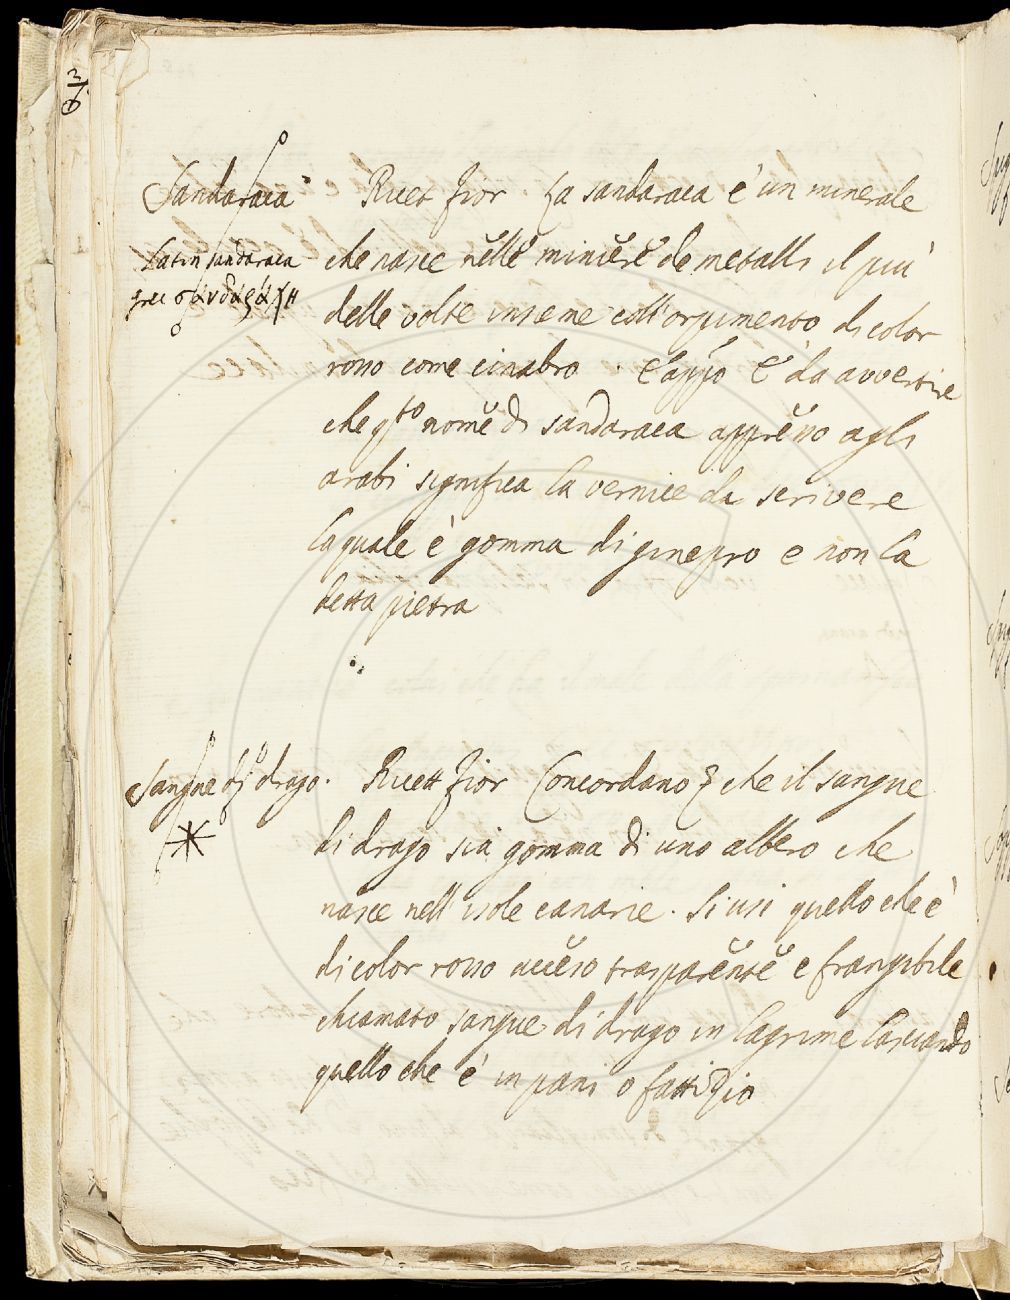 Sandaraca
Latin sandaraca
grec σανδαράχη
Ricet fior La sandaraca è un minerale
che nasce nelle miniere de metalli il più
delle volte insieme coll'orpimento di color
rosso come cinabro. È da avvertire
che qto nome di sandaraca appresso agli
arabi significa la vernice da scrivere
la quale è gomma di ginepro e non la
detta pietra
Sangue di drago.
Ricett fior Concordano che il sangue
di drago sia gomma di uno albero che
nasce nell'isole canarie. Si usi quello che è
di color rosso acceso trasparente e frangibile
chiamato sangue di drago in lagrime lasciando
quello che è in pani o fattizio